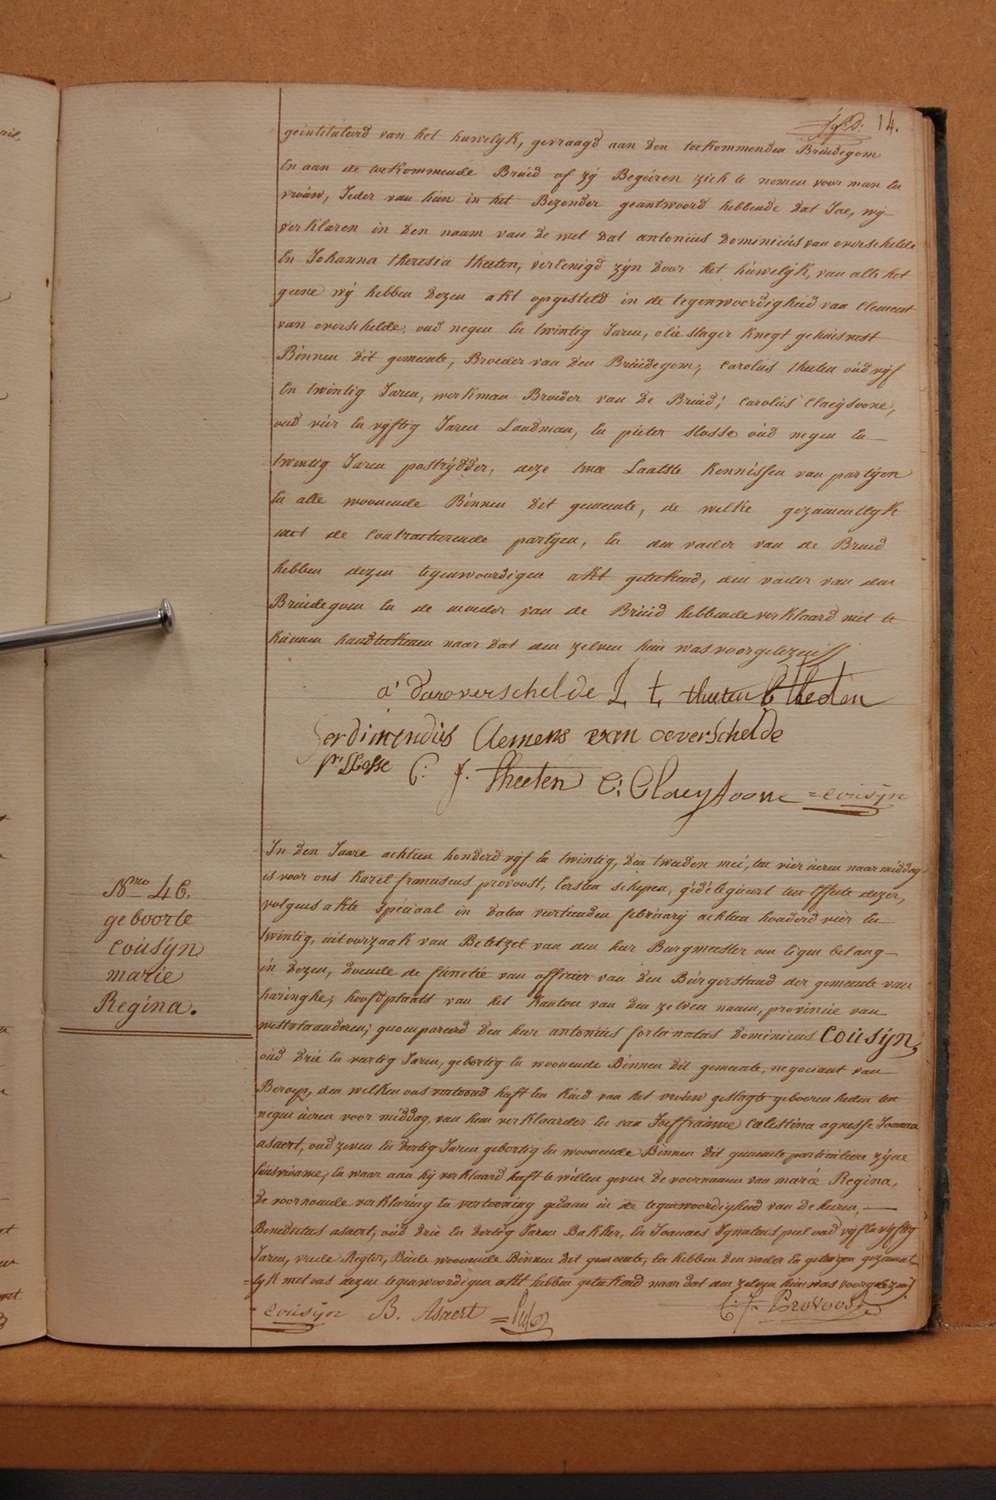 14.
geintituleerd van het huwelijk, gevraagd aan den toekommenden Bruidegom
En aan de toekommende Bruid of zij Begeeren zich te nemen voor man En
vrouw, Ieder van hun in het Bezonder geantwoord hebbende dat Jae, wij
verklaren in den naam van de wet dat antonius Dominicus van overschelde
En Johanna theresia theeten, vereenigd zijn door het huwelijk, van alle het
geene wij hebben dezen akt opgesteld in de tegenwoordigheid van Clement
van overschelde, oud negen En twintig Jaren, olie slager knegt gehuisvest
Binnen dit gemeente, Broeder van den Bruidegom, Carolus theeten oud vijf
En twintig Jaren, werkman Broeder van de Bruid; Carolus Claeysoone,
oud vier En vijftig Jaren Landman, En pieter slosse oud negen En
twintig Jaren postrijdder, deze twee Laatste kennissen van partijen
En alle woonende Binnen dit gemeente, de welke gezamentlijk
met de Contracteerende partijen, En den vader van de Bruid
hebben dezen tegenwoordigen akt geteekend, den vader van den
Bruidegom En de moeder van de Bruid hebbende verklaard niet te
kunnen handteekenen naar dat den zelven hun was voorgelezen
a Vanoverschelde J, t, theeten C theeten
Ferdinendus Clemens van overschelde
Pr Slosse C: J. theeten C: Claeysoone = Cousijn
Nmo 46.
geboorte
Cousijn
marie
Regina.
In den Jaare achtien honderd vijf En twintig, den tweeden mei, ten vier uren naar middag
is voor ons karel franciscus provoost, Eersten schepen, gedelegueert ten Effecte dezer,
volgens akte speciaal in daten veertienden februarij achtien honderd vier En
twintig, uit oorzaak van Beletzel van den heer Burgmeester om Eigen belang
in dezen, doende de functie van officier van den Burgerstand der gemeente van
haringhe, hoofdplaats van het Kanton van den zelven naam, provincie van
westvlaanderen; gecompareerd den heer antonius fortunatus Dominicus Cousijn,
oud drie En veertig Jaren, gebortig En woonende Binnen dit gemeente, negociant van
Beroep, den welken ons vertoond heeft Een kind van het vrouw geslagte geboren heden ten
negen uren voor middag, van hem verklaarder En van Joeffrauwe Cælestina agnesse Joanna
asaert, oud zeven En dertig Jaren gebortig En woonende Binnen dit gemeente particuliere zijne
huisvrauwe, En waar aan hij verklaard heeft te willen geven de voornaamen van marie Regina,
De voornoemde verklaring En vertooning gedaan in de tegenwoordigheid van de heeren,
Benedictus asaert, oud drie En dertig Jaren Bakker, En Joannes Ignatius piel oud vijf En vijftig
Jaren, vrede Regter, Beide woonende Binnen dit gemeente, En hebben den vader En getuigen gezament
=lijk met ons dezen tegenwoordigen akt hebben geteekend naar dat den zelven hun was voorgelezen
= Cousijn B. Asaert = Piel C: F. Provoost